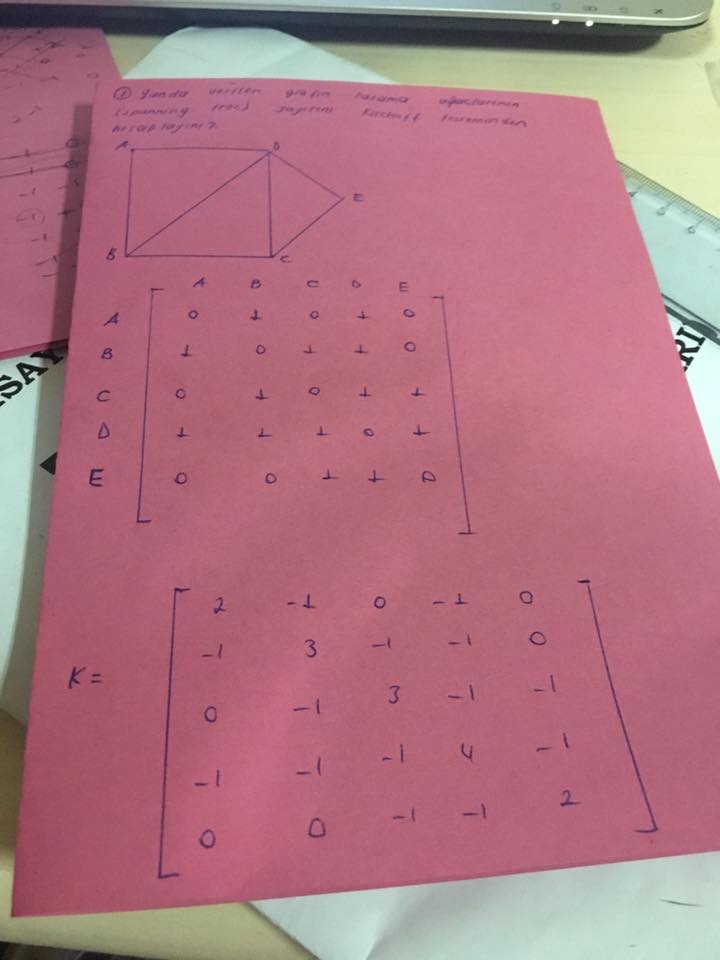 ① Yanda verilen grafın tarama ağaçlarının
(spanning tree) sayısını Kirchoff teoreminden
hesaplayınız.
A D
E
B C
A B C D E
A 0 1 0 1 0
B 1 0 1 1 0
C 0 1 0 1 1
D 1 1 1 0 1
E 0 0 1 1 0
2 -1 0 -1 0
-1 3 -1 -1 0
K =
0 -1 3 -1 -1
-1 -1 -1 4 -1
0 0 -1 -1 2